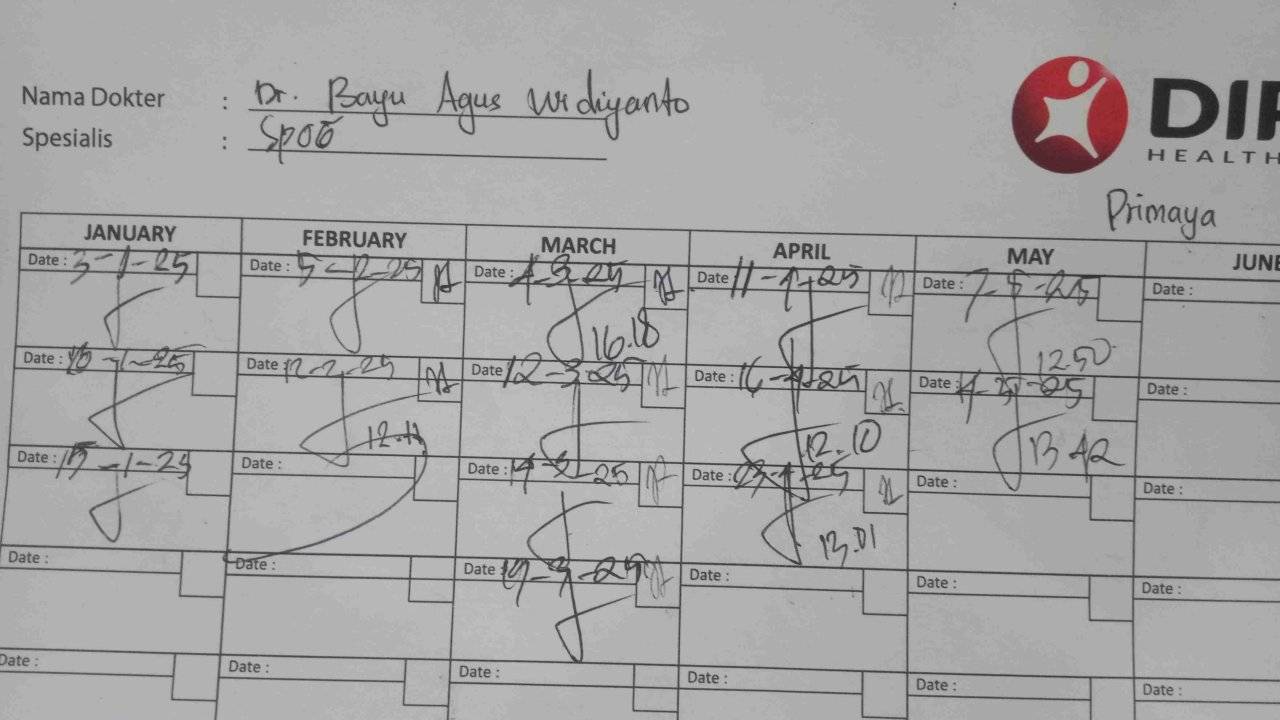 Nama Dokter : Dr. Bayu Agus Widiyanto
Spesialis : SpOG
DIP
HEALTH
Primaya
JANUARY FEBRUARY MARCH APRIL MAY JUNE
Date : 3-1-25 Date : 5-2-25 Date : 4-3-25 Date : 11-4-25 Date : 7-5-25 Date :
16.18 12.50
Date : 10-1-25 Date : 12-2-25 Date : 12-3-25 Date : 16-4-25 Date : Date :
12.10 13.42
Date : 15-1-25 Date : Date : 14-3-25 Date : 23-4-25 Date : Date :
13.01
Date : Date : Date : 19-3-25 Date : Date : Date :
Date : Date : Date : Date : Date : Date :